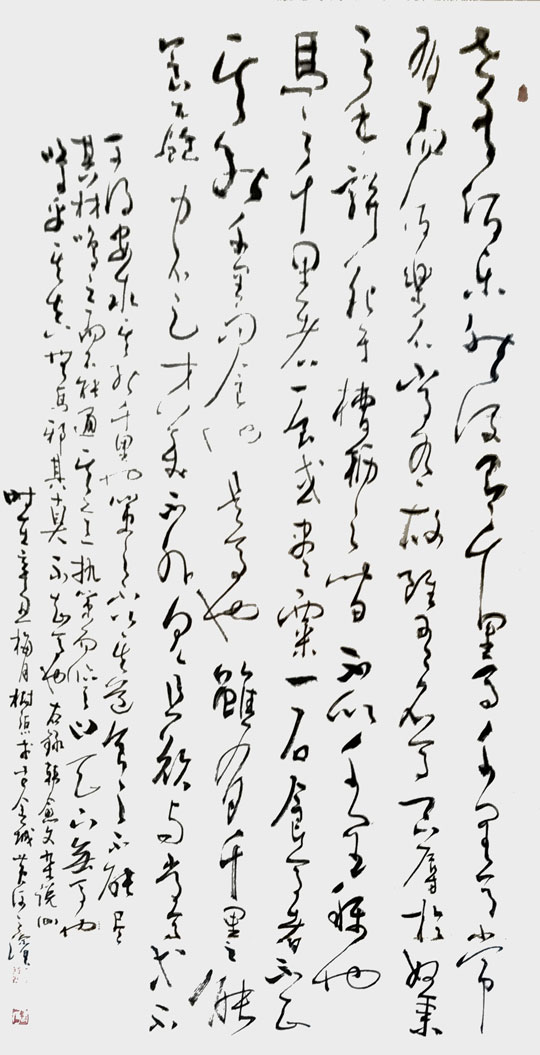 世有伯乐然後有千里马千里马常
有而伯樂不常有故雖有名马只辱於奴隶
之手骈死于槽枥之间不以千里稱也
馬之千里者一食或盡粟一石食马者不知
其能千里而食也是马也雖有千里之能
食不飽力不足才美不外見且欲与常马等不
可得安求其能千里也策之不以其道食之不能盡
其材鳴之而不能通其意执策而临之曰天下無马也
嗚乎其真無馬邪其真不知马也右録韩愈文杂说四
时在辛丑梅月樹於古金城黄河之濱